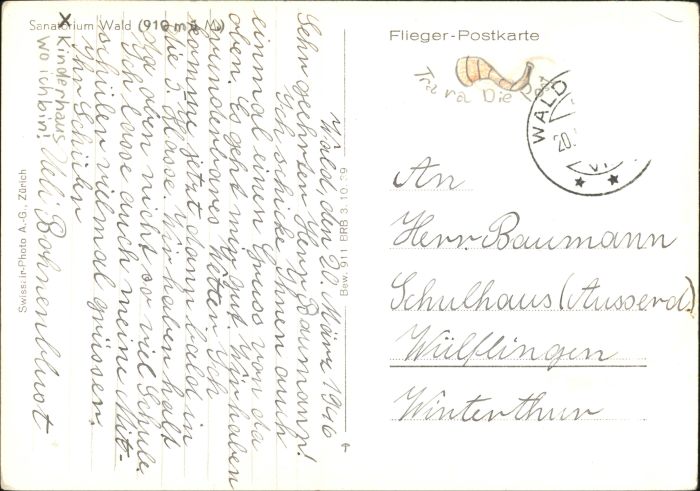 Sanatorium Wald (910 m ü. M.)
x Kinderhaus
wo ich bin!
Wald, den 20. März 1946
Sehr geehrter Herr Baumann!
Ich schicke Ihnen auch
einmal einen Gruss von da
oben. Es geht mir gut. Wir haben
wunderbares Wetter. Ich
komme jetzt dann bald in
die 3 Klasse. Wir haben halt
da oben nicht so viel Schule.
Ich lasse auch meine Mit-
schüler vielmal grüssen.
Ihr Schüler
Ueli Bohnenblust
Swissair-Photo A.-G., Zürich
Bew. 911 BRB 3. 10. 39
Flieger-Postkarte
Trara Die Post
WALD
20.
VI
An
Herr Baumann
Schulhaus (Ausserd.)
Wülflingen
Winterthur